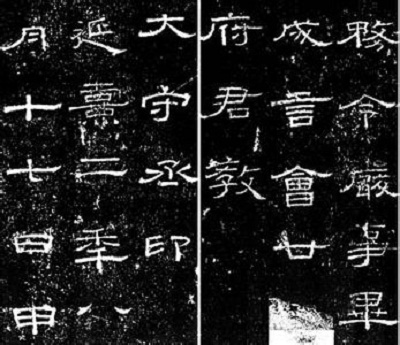 務令嚴事畢
成言會廿
府君教
大守丞印
延熹二秊八
月十七日甲